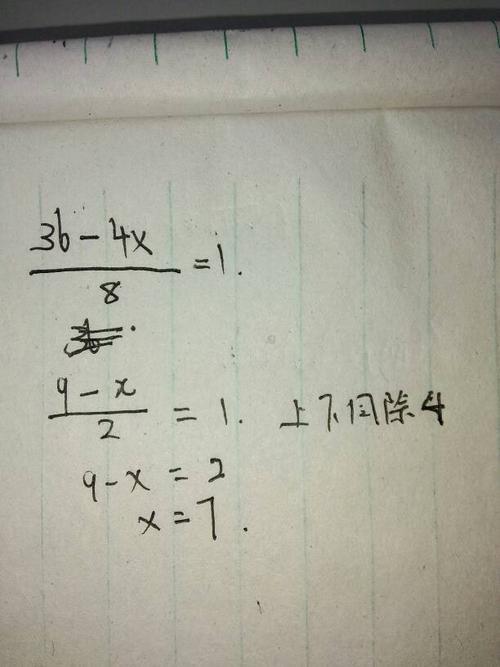 36-4x
8
=1.
9-x
2
=1. 上下同除4
9-x=2
x=7.